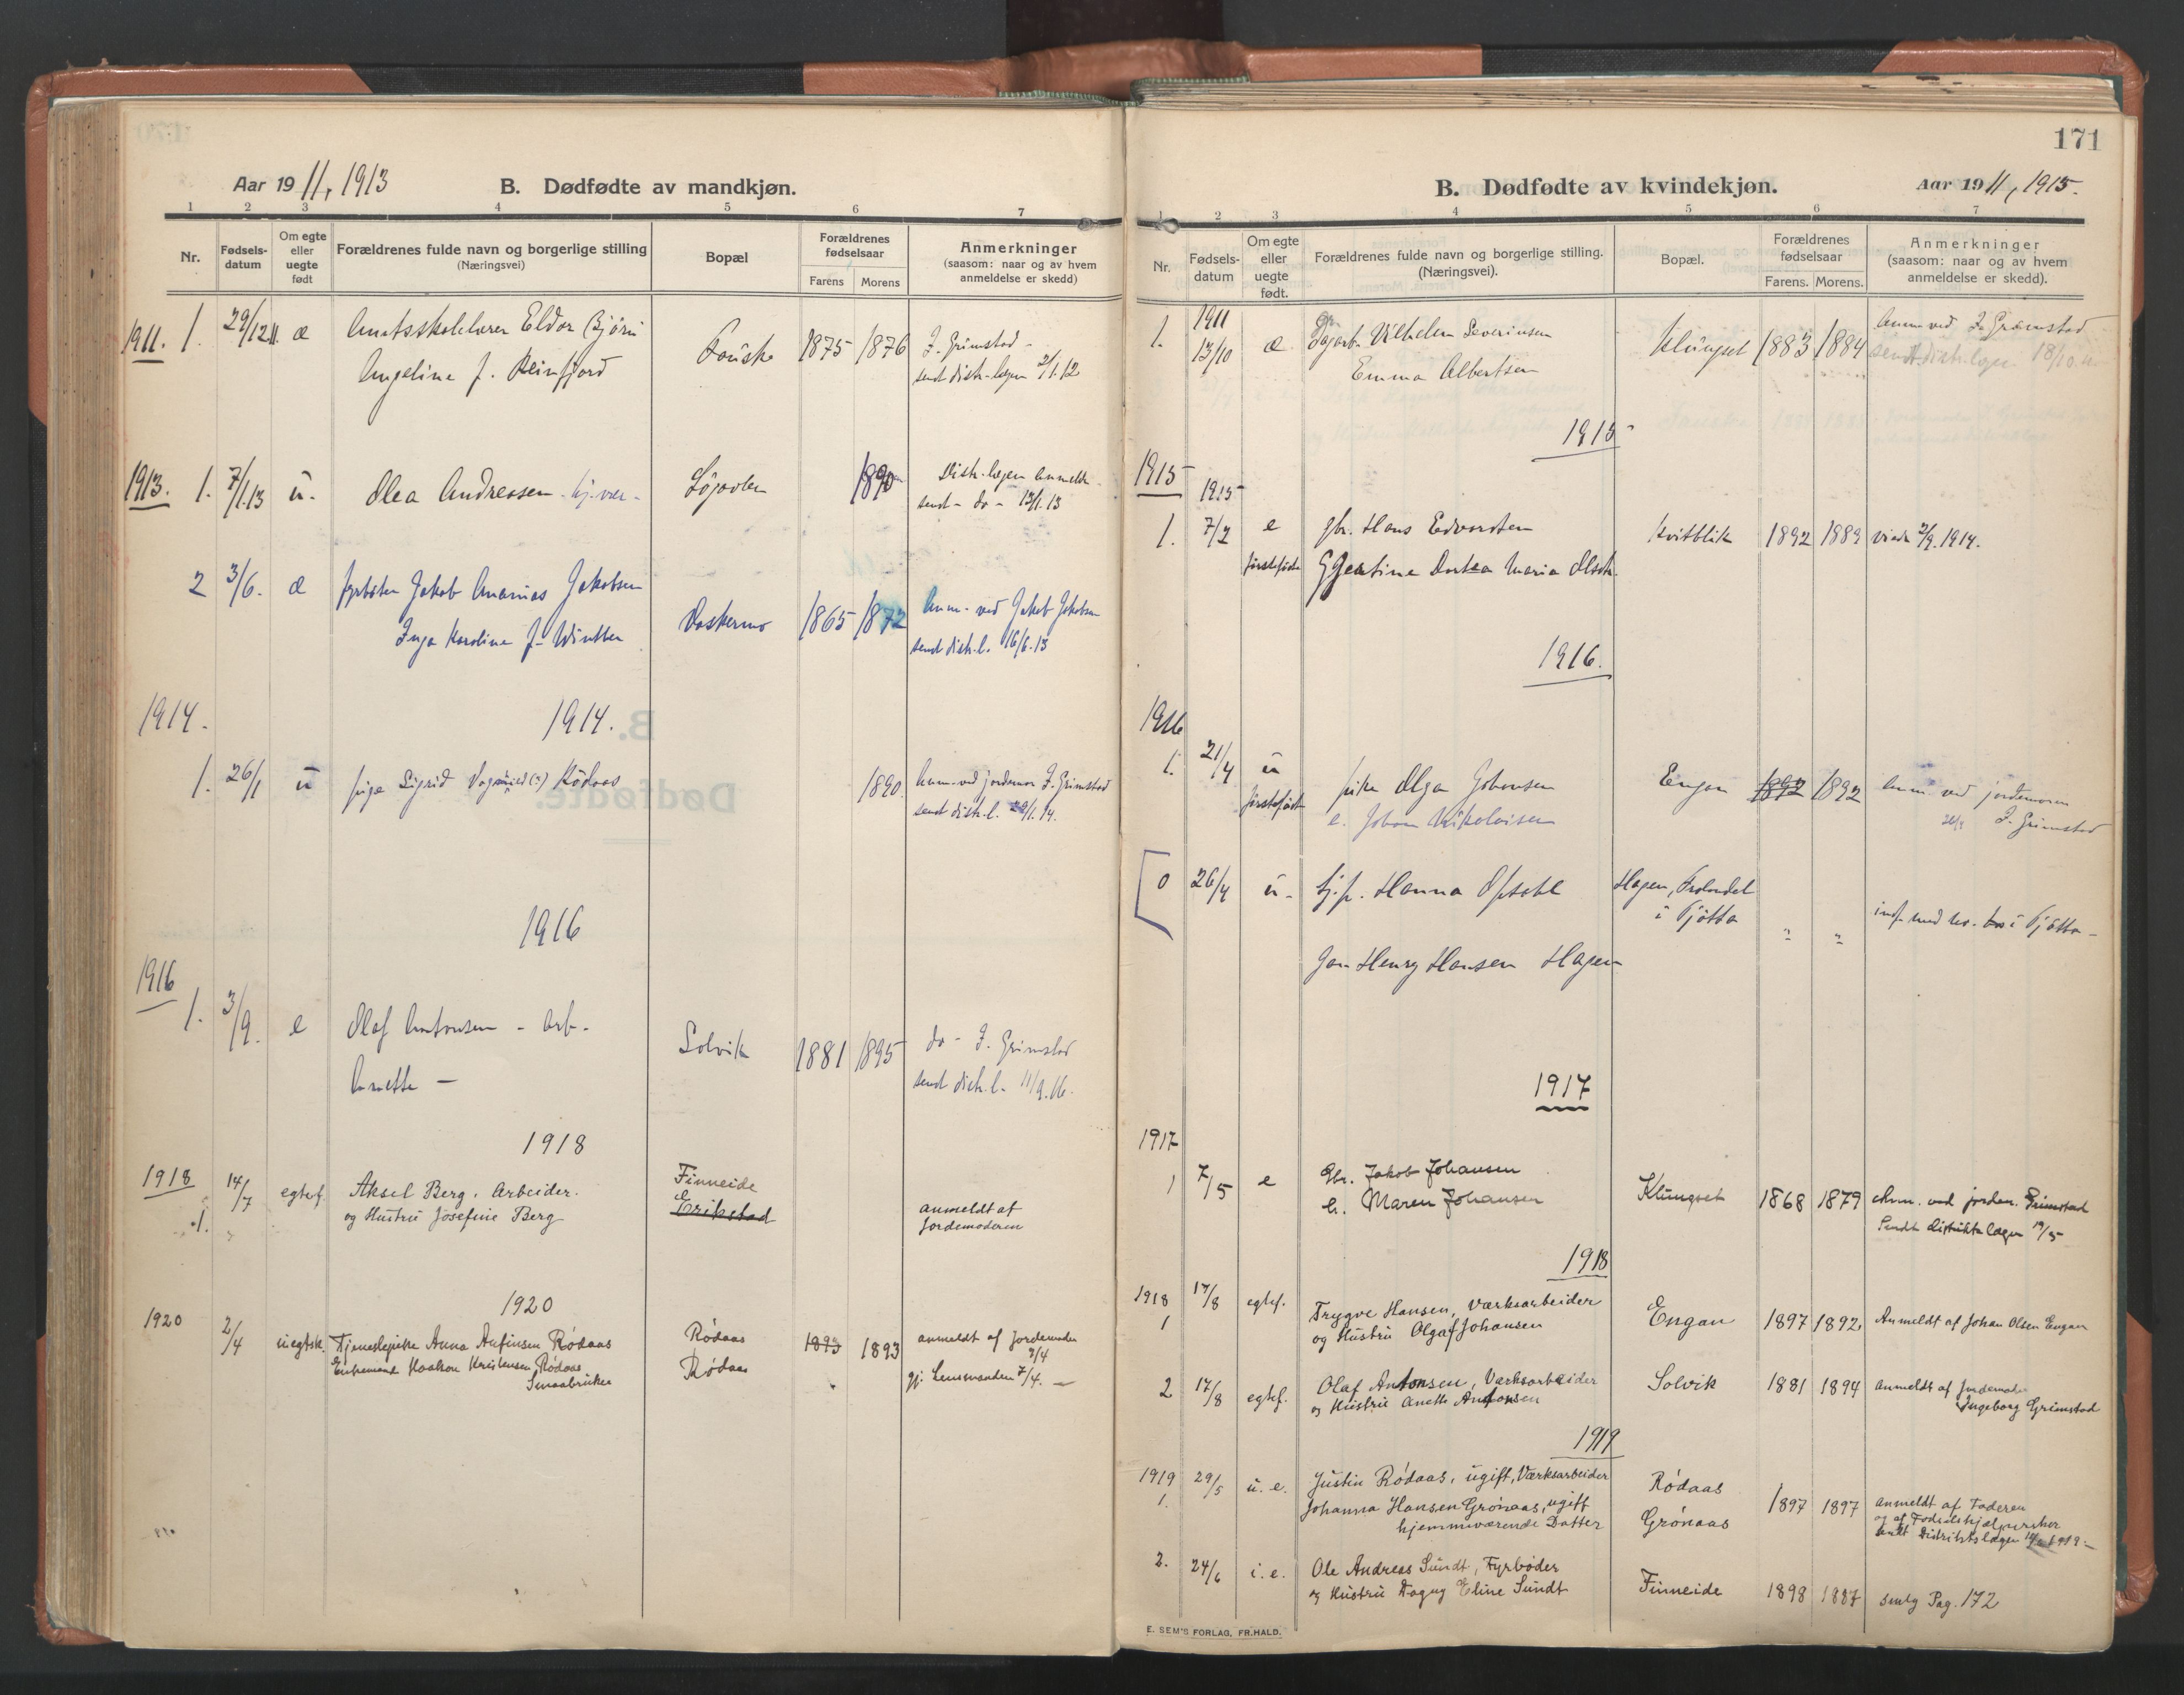 Aar 1911, 1913
B. Dødfødte av mandkjøn.
1 2 3 4 5 6 7
Nr.
Fødselsdatum
Om egte eller uegte født
Forældrenes fulde navn og borgerlige stilling
(Næringsvei)
Bopæl
Forældrenes fødselsaar
Farens Morens
Anmerkninger
(saasom: naar og av hvem anmeldelse er skedd)
1911. 1. 29/12 11. æ Amtsskolelærer Eldor Bjørn Fauske 1875 1876 I. Grimstad -
Angeline f. Reinfjord sendt distr. lægen 2/1.12
1913. 1. 7/1.13 u. Olea Andreassen hj.vær. Løgavlen 1890 Distr. lægen anmeldt
sendt - do - 13/1.13
2 3/6. æ fyrbøter Jakob Ananias Jakobsen Vaskermo 1865 1872 Anm. ved Jakob Jakobsen
Inga Karoline f. Winther sendt distr. l. 16/6.13
1914. 1914.
1. 26/1 u pige Sigrid Rødaas 1890. Anm. ved jordemor I. Grimstad
sendt distr. l. 29/1.14.
1916
1916
1. 3/9. e Olaf Antonsen - arb. Solvik 1881 1895 do - I. Grimstad
Anette — sendt distr. l. 11/9.16.
1918
1918 14/7 egtef. Aksel Berg. Arbeider. Finneide
1. og Hustru Josefine Berg Erikstad anmeldt af Jordemoderen
1920
1920 2/4 uegtsk. Tjenestepike Anna Anfinsen Rødaas Rødaas 1893 1893 anmeldt af Jordemoder 3/4
Enkemand Haakon Kristensen Rødaas Rødaas gj. Lensmanden 7/4. —
Smaabruker
171
B. Dødfødte av kvindekjøn.
Aar 1911, 1915.
1 2 3 4 5 6 7
Nr.
Fødselsdatum
Om egte eller uegte født.
Forældrenes fulde navn og borgerlige stilling.
(Næringsvei).
Bopæl.
Forældrenes fødselsaar
Farens. Morens.
Anmerkninger
(saasom: naar og av hvem anmeldelse er skedd).
1911
1. 13/10 æ Dagarb. Vilhelm Severinsen Klungset 1883 1884 Anm ved I. Grimstad
Emma Albertsen sendt distr. lægen 18/10.11
1915
1915
1915
1. 7/2 e gbr. Hans Edvardsen Kvitblik 1892 1889 viede 2/9. 1914.
førstefødte Gjertine Dortea Maria Olsdt.
1916.
1916
1. 21/4 u pike Olga Johansen Engan 1892 1892 Anm. ved jordemoren
førstefødte e. Johan Nikolaisen I. Grimstad
0 26/4 u. tj.p. Hanna Opsahl Hagen,
i Tjøtta " " indf. med no. i Tjøtta -
Jan Henry Hansen Hagen
1917
1917
1 7/5 e Gbr. Jakob Johansen Klungset 1868 1879 Anm. ved jordem. Grimstad
h. Maren Johansen Sendt Distriktslægen 19/5
1918
1918 17/8 egtef. Trygve Hansen, Værksarbeider Engan 1897 1892 Anmeldt af Johan Olsen Engan
1 og Hustru Olga f. Johansen
2 17/8 egtef. Olaf Antonsen, Værksarbeider Solvik 1881 1894 Anmeldt af Jordemoder
og Hustru Anette Antonsen Ingeborg Grimstad
1919
1919 29/5 u. e. Justin Rødaas, ugift, Værksarbeider Rødaas 1897 1897 anmeldt af Faderen
1. Johanna Hansen Grønaas, ugift Grønaas og af Fødselshjælperske
hjemmeværende Datter sendt Distriktslægen 1919 -
2. 24/6 i. e. Ole Andreas Sundt, Fyrbøder Finneide 1898 1887 smlg Pag. 172
og Hustru Dagny Eline Sundt
E. SEM'S FORLAG, FR.HALD.